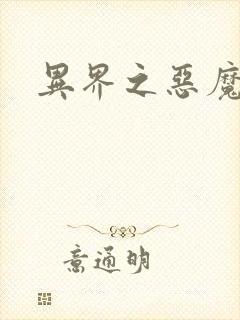 異界之惡魔
意通明